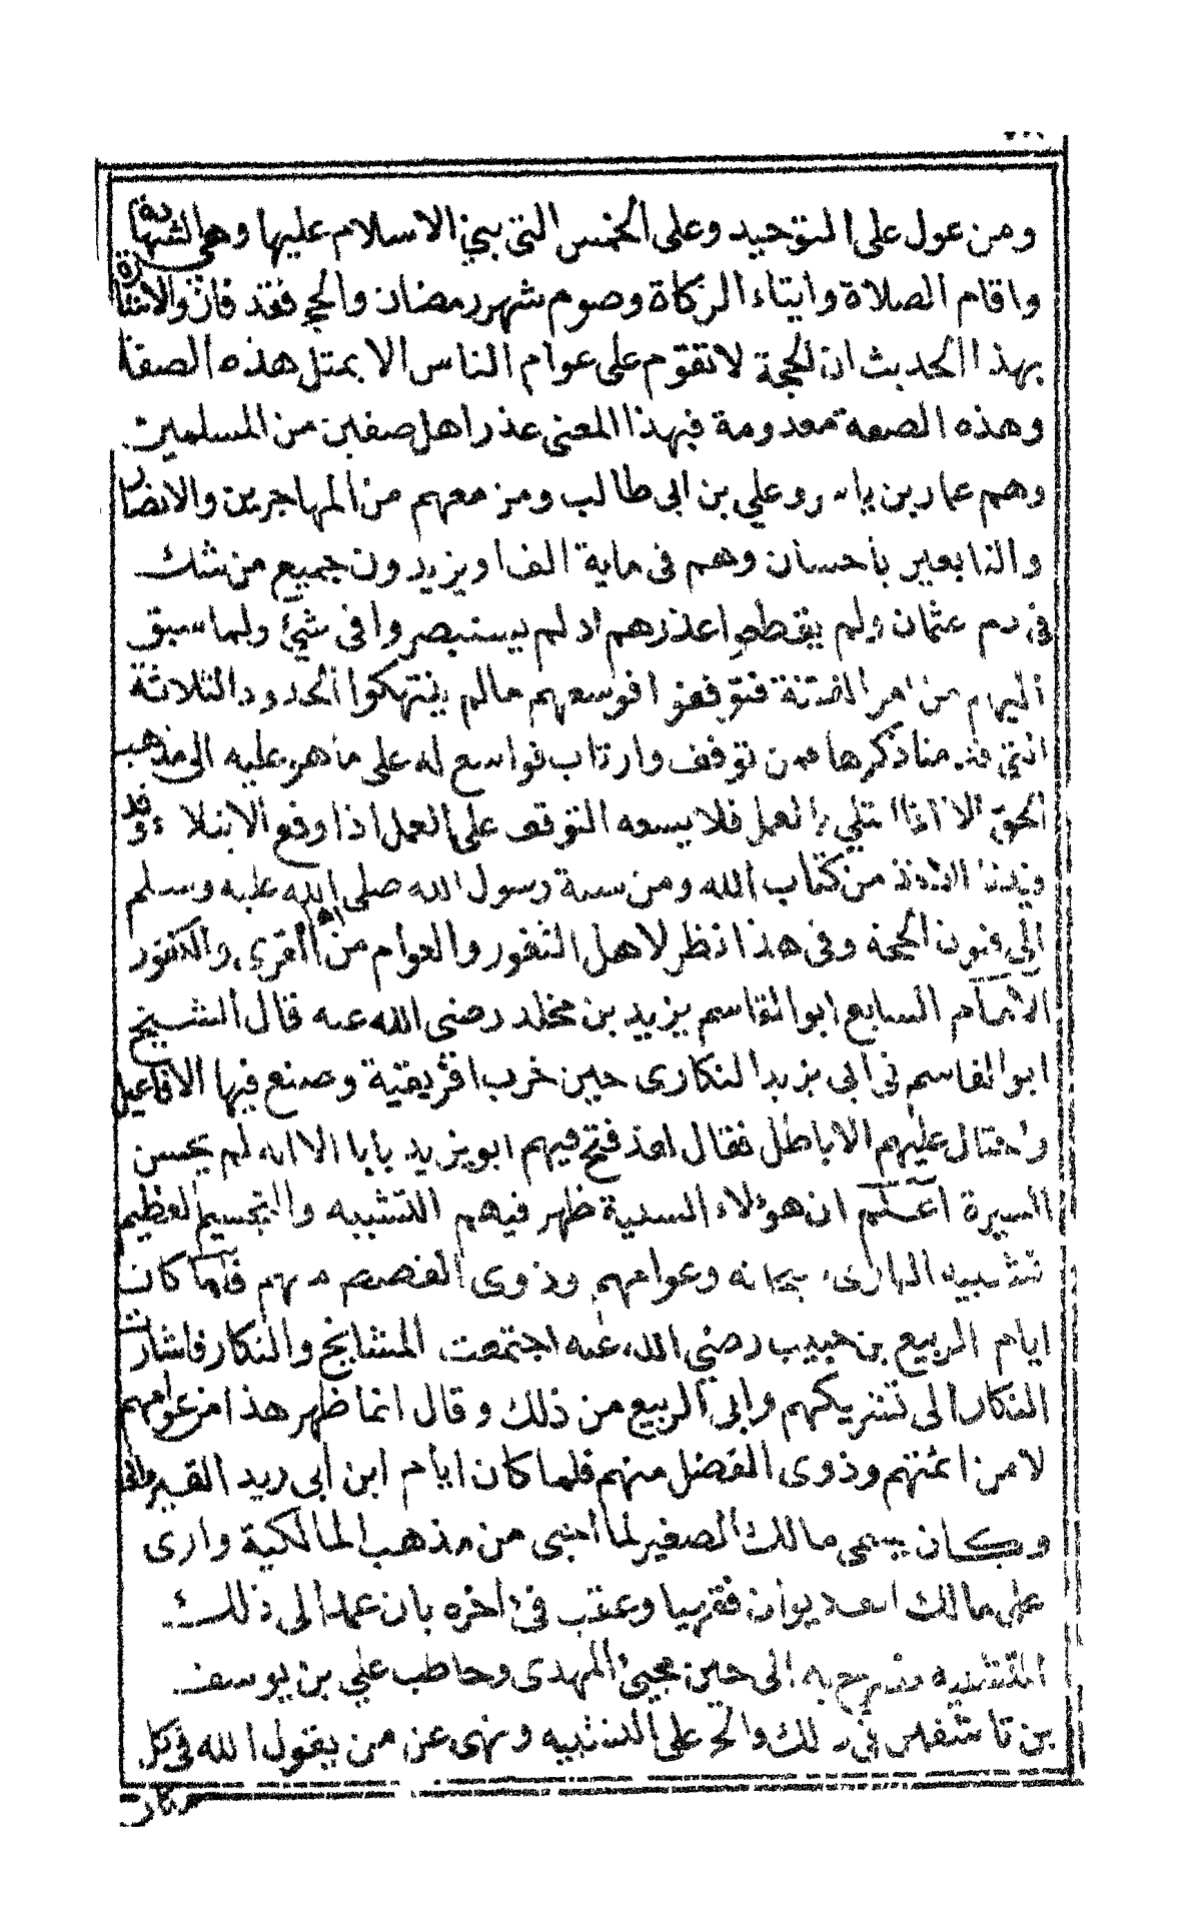 ومن عول على التوحيد وعلى الخمس التي بني الاسلام عليها وهي الشهادة
واقام الصلاة وايتاء الزكاة وصوم شهر رمضان والحج فقد فاز والاشارة
بهذا الحديث ان الحجة لا تقوم على عوام الناس الا بمثل هذه الصفة
وهذه الصفة معدومة فبهذا المعنى عذر اهل صفين من المسلمين
وهم عمار بن ياسر وعلي بن ابي طالب ومن معهم من المهاجرين والانصار
والتابعين باحسان وهم في ماية الف او يزيدون جميع من شك
في دم عثمان ولم يقطعوا عذرهم اذ لم يستبصروا في شئ ولما سبق
اليهم من امر الفتنة فتوقفوا فوسعهم مالم ينتهكوا الحدود الثلاثة
التي قدمنا ذكرها فمن توقف وارتاب فواسع له على ما هو عليه الى مذهب
الحق الا اذا ابتلي بالعمل فلا يسعه التوقف على العمل اذا وقع الابتلاء وقد
من كتاب الله ومن سنة رسول الله صلى الله عليه وسلم
الى فنون الحجة وفي هذا نظر لاهل الثغور والعوام من اهل القرى والكفور
الامام السابع ابو القاسم يزيد بن مخلد رضي الله عنه قال الشيخ
ابو القاسم في ابي يزيد النكارى حين خرب افريقية وصنع فيها الافاعيل
واحتال عليهم الاباطل فقال لقد فتح فيهم ابو يزيد بابا الا انه لم يحسن
السيرة اعلم ان هؤلاء السنية ظهر فيهم التشبيه والتجسيم العظيم
تشبيه البارى سبحانه وعوامهم وذوى الفضل منهم فلما كان
ايام الربيع بن حبيب رضي الله عنه اجتمعت المشايخ والنكار فاشارت
النكار الى تشريكهم وابى الربيع من ذلك وقال انما ظهر هذا من عوامهم
لا من ائمتهم وذوى الفضل منهم فلما كان ايام ابن أبي زيد القيرواني
وكان يسمى مالك الصغير لما احيى من مذهب المالكية وارى
على مالك فقربيا وعتب في اخره بان عمد الى ذلك
التشبيه وصرح به الى حين مجيئ المهدى وخاطب علي بن يوسف
بن تاشفين في ذلك والح على التشبيه ونهى عن من يقول الله في كل
مكان